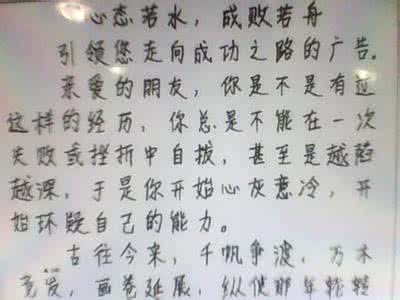 心态若水，成败若舟
引领您走向成功之路的广告。
亲爱的朋友，你是不是有过
这样的经历，你总是不能在一次
失败或挫折中自拔，甚至是越陷
越深，于是你开始心灰意冷，开
始环疑自己的能力。
古往今来，千帆争波，万木
竞发，画卷延展，纵使那年